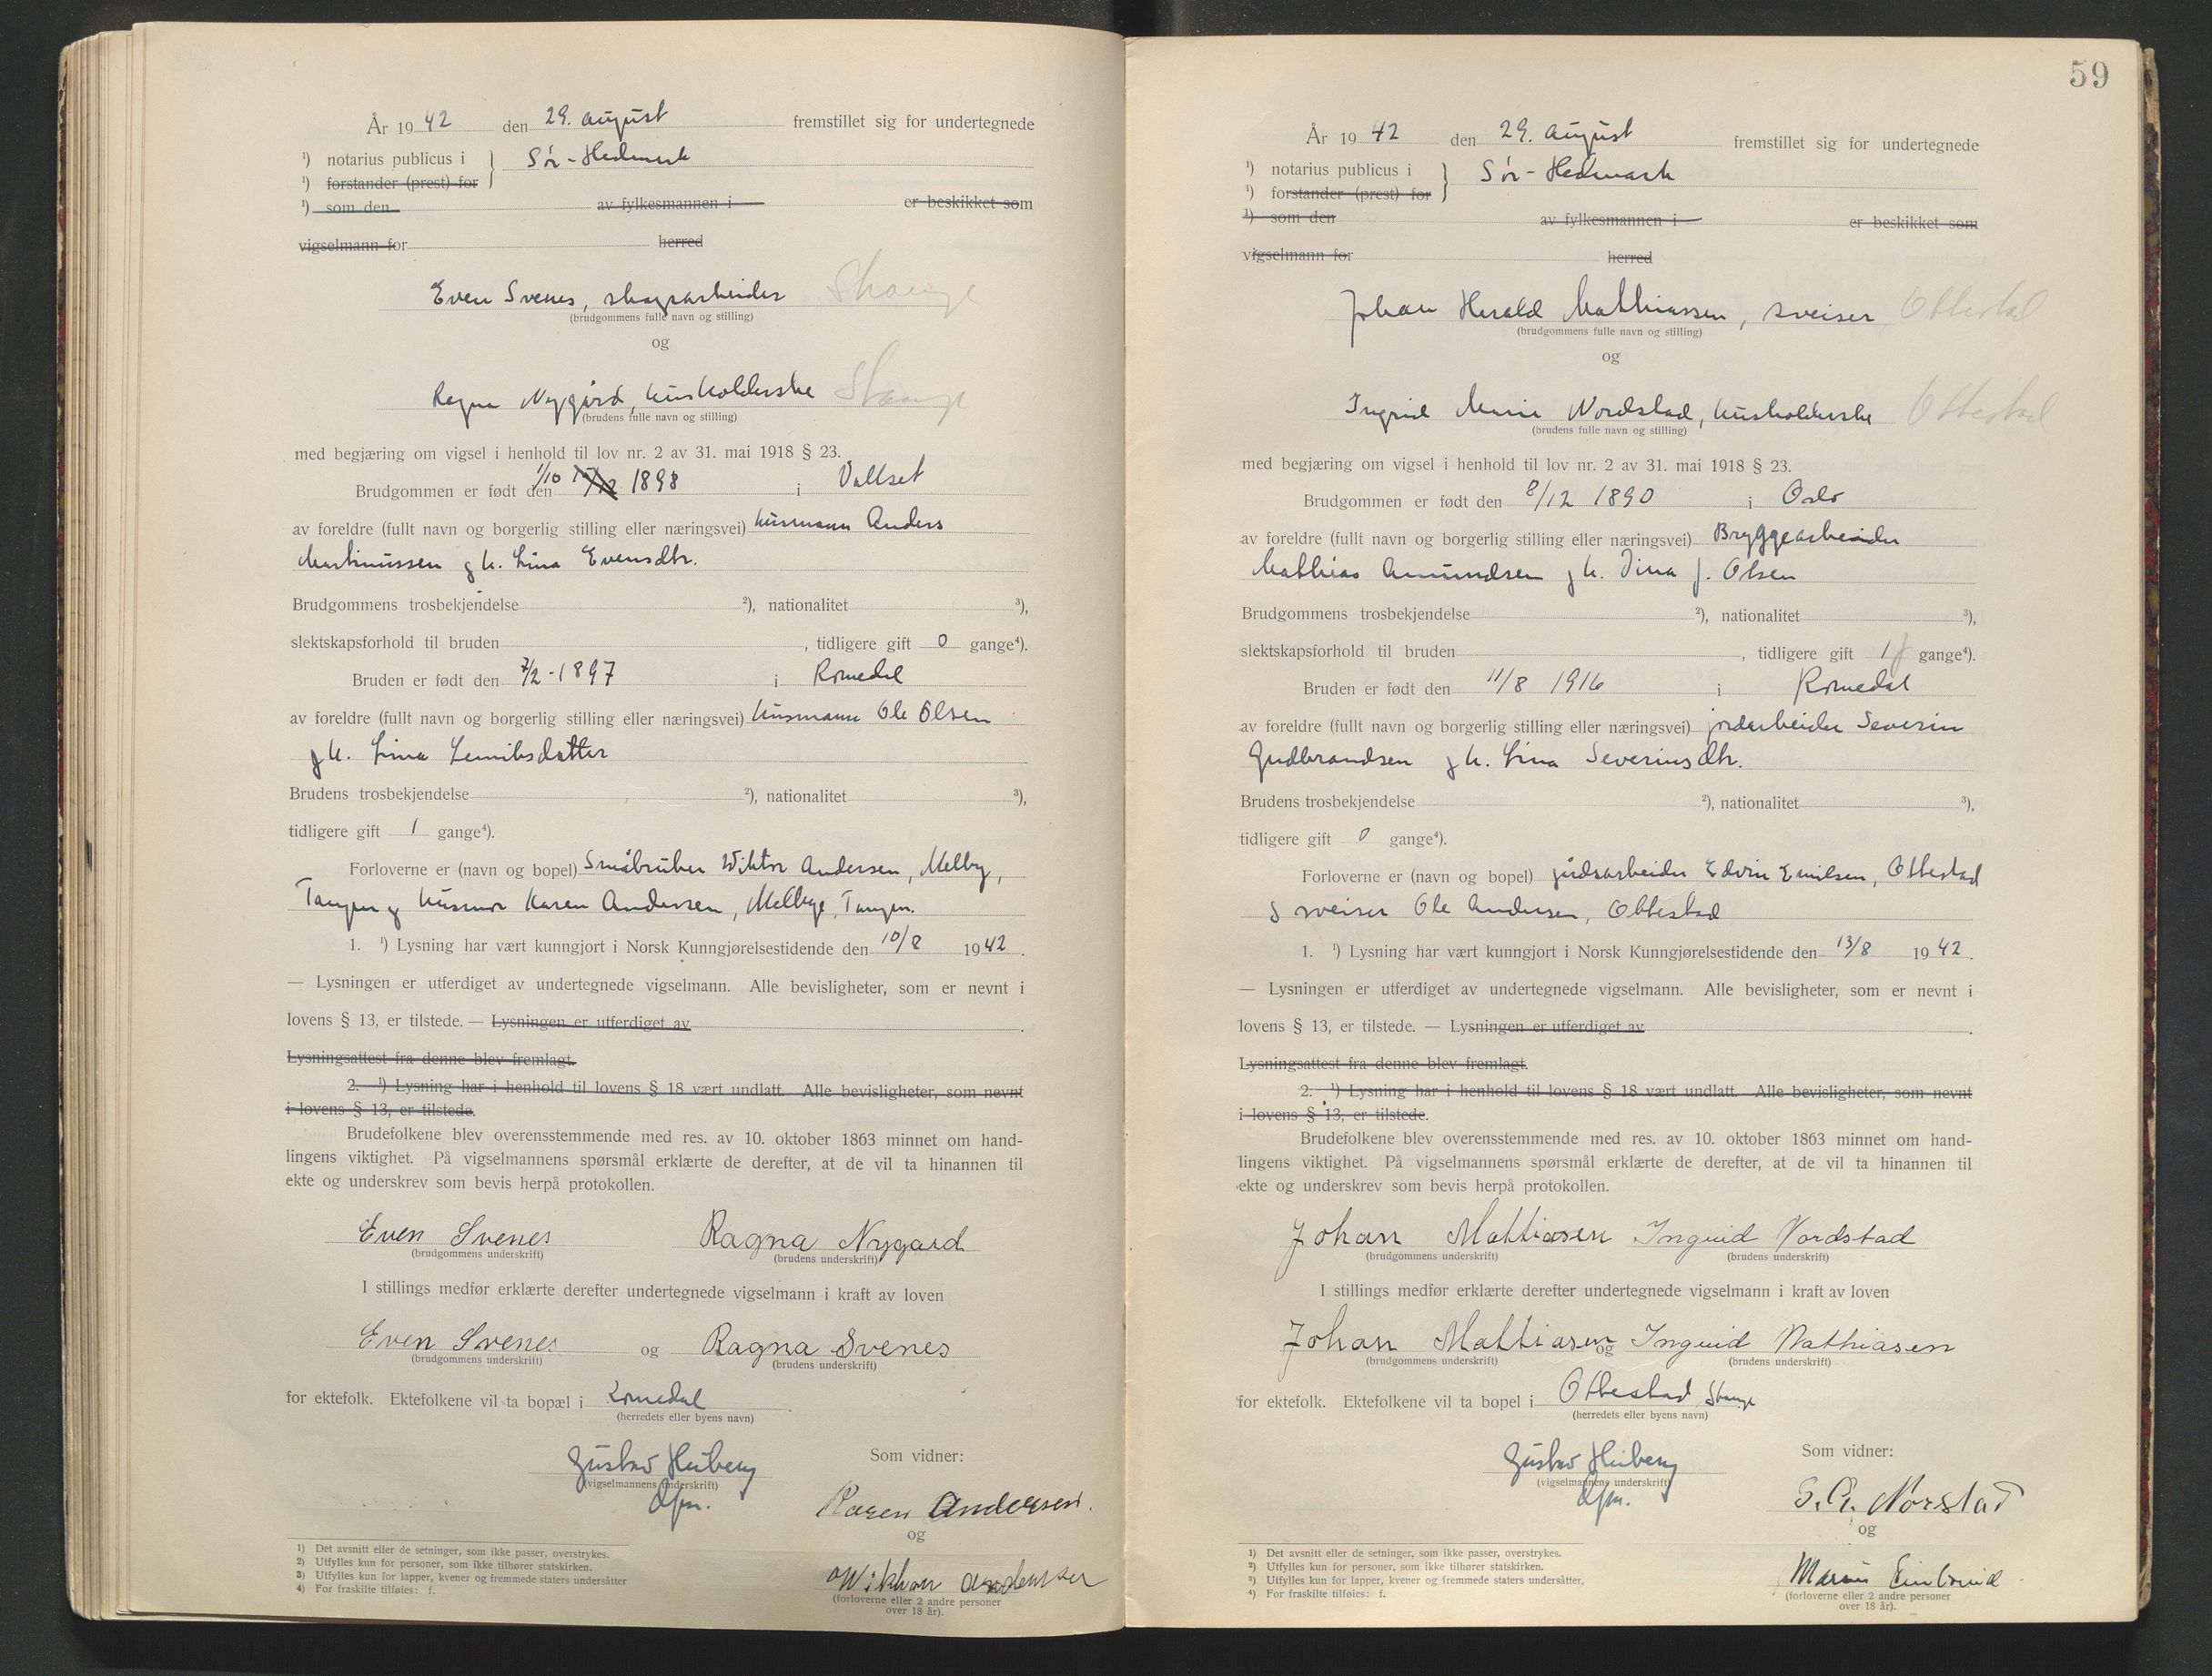 År 1942 den 29. august fremstillet sig for undertegnede
¹) notarius publicus i } Sør-Hedmark
¹) forstander (prest) for
¹) som den av fylkesmannen i er beskikket som
vigselmann for herred
Even Svenes, skogsarbeider Stange
(brudgommens fulle navn og stilling)
og
Ragna Nygård, husholderske Stange
(brudens fulle navn og stilling)
med begjæring om vigsel i henhold til lov nr. 2 av 31. mai 1918 § 23.
Brudgommen er født den 1/10 1898 i Vallset
av foreldre (fullt navn og borgerlig stilling eller næringsvei) husmann Anders
Martinussen og h. Lina Evensdtr.
Brudgommens trosbekjendelse ²), nationalitet ³),
slektskapsforhold til bruden , tidligere gift 0 gange⁴).
Bruden er født den 7/2-1897 i Romedal
av foreldre (fullt navn og borgerlig stilling eller næringsvei) husmann Ole Olsen
og h. Lina
Brudens trosbekjendelse ²), nationalitet ³),
tidligere gift 1 gange⁴).
Forloverne er (navn og bopel) Småbruker Wiktor Andersen, Melby,
Tangen og husmor Karen Andersen, Melbye, Tangen.
1. ¹) Lysning har vært kunngjort i Norsk Kunngjørelsestidende den 10/8 1942.
— Lysningen er utferdiget av undertegnede vigselmann. Alle bevisligheter, som er nevnt i
lovens § 13, er tilstede. — Lysningen er utferdiget av .
Lysningsattest fra denne blev fremlagt.
2. ¹) Lysning har i henhold til lovens § 18 vært undlatt. Alle bevisligheter, som nevnt
i lovens § 13, er tilstede.
Brudefolkene blev overensstemmende med res. av 10. oktober 1863 minnet om hand-
lingens viktighet. På vigselmannens spørsmål erklærte de derefter, at de vil ta hinannen til
ekte og underskrev som bevis herpå protokollen.
Even Svenes Ragna Nygaard
(brudgommens underskrift) (brudens underskrift)
I stillings medfør erklærte derefter undertegnede vigselmann i kraft av loven
Even Svenes og Ragna Svenes
(brudgommens underskrift) (brudens underskrift)
for ektefolk. Ektefolkene vil ta bopæl i Romedal .
(herredets eller byens navn)
Gustav Heiberg Som vidner:
(vigselmannens underskrift)
dfm.
Karen Andersen.
og
Wiktor Andersen
(forloverne eller 2 andre personer
over 18 år).
1) Det avsnitt eller de setninger, som ikke passer, overstrykes.
2) Utfylles kun for personer, som ikke tilhører statskirken.
3) Utfylles kun for lapper, kvener og fremmede staters undersåtter
4) For fraskilte tilføies: f.
59
År 1942 den 29. august fremstillet sig for undertegnede
¹) notarius publicus i } Sør-Hedmark
¹) forstander (prest) for
¹) som den av fylkesmannen i er beskikket som
vigselmann for herred
Johan Harald Matthiassen, sveiser Ottestad
(brudgommens fulle navn og stilling)
og
Ingrid Marie Nordstad, husholderske Ottestad
(brudens fulle navn og stilling)
med begjæring om vigsel i henhold til lov nr. 2 av 31. mai 1918 § 23.
Brudgommen er født den 8/12 1890 i Oslo
av foreldre (fullt navn og borgerlig stilling eller næringsvei) Bryggearbeider
Mathias Amundsen og h. Dina f. Olsen
Brudgommens trosbekjendelse ²), nationalitet ³),
slektskapsforhold til bruden , tidligere gift 1 f gange⁴).
Bruden er født den 11/8 1916 i Romedal
av foreldre (fullt navn og borgerlig stilling eller næringsvei) jordarbeider Severin
Gudbrandsen og h. Lina Severinsdtr.
Brudens trosbekjendelse ²), nationalitet ³),
tidligere gift 0 gange⁴).
Forloverne er (navn og bopel) gårdsarbeider Edvin Emilsen, Ottestad
og sveiser Ole Andersen, Ottestad
1. ¹) Lysning har vært kunngjort i Norsk Kunngjørelsestidende den 13/8 1942.
— Lysningen er utferdiget av undertegnede vigselmann. Alle bevisligheter, som er nevnt i
lovens § 13, er tilstede. — Lysningen er utferdiget av .
Lysningsattest fra denne blev fremlagt.
2. ¹) Lysning har i henhold til lovens § 18 vært undlatt. Alle bevisligheter, som nevnt
i lovens § 13, er tilstede.
Brudefolkene blev overensstemmende med res. av 10. oktober 1863 minnet om hand-
lingens viktighet. På vigselmannens spørsmål erklærte de derefter, at de vil ta hinannen til
ekte og underskrev som bevis herpå protokollen.
Johan Mattiasen Ingrid Nordstad
(brudgommens underskrift) (brudens underskrift)
I stillings medfør erklærte derefter undertegnede vigselmann i kraft av loven
Johan Mattiasen og Ingrid Mathiasen
(brudgommens underskrift) (brudens underskrift)
for ektefolk. Ektefolkene vil ta bopel i Ottestad Stange
(herredets eller byens navn)
Gustav Heiberg Som vidner:
(vigselmannens underskrift)
dfm.
S. G. Norstad
og
(forloverne eller 2 andre personer
over 18 år).
1) Det avsnitt eller de setninger, som ikke passer, overstrykes.
2) Utfylles kun for personer, som ikke tilhører statskirken.
3) Utfylles kun for lapper, kvener og fremmede staters undersåtter.
4) For fraskilte tilføies: f.